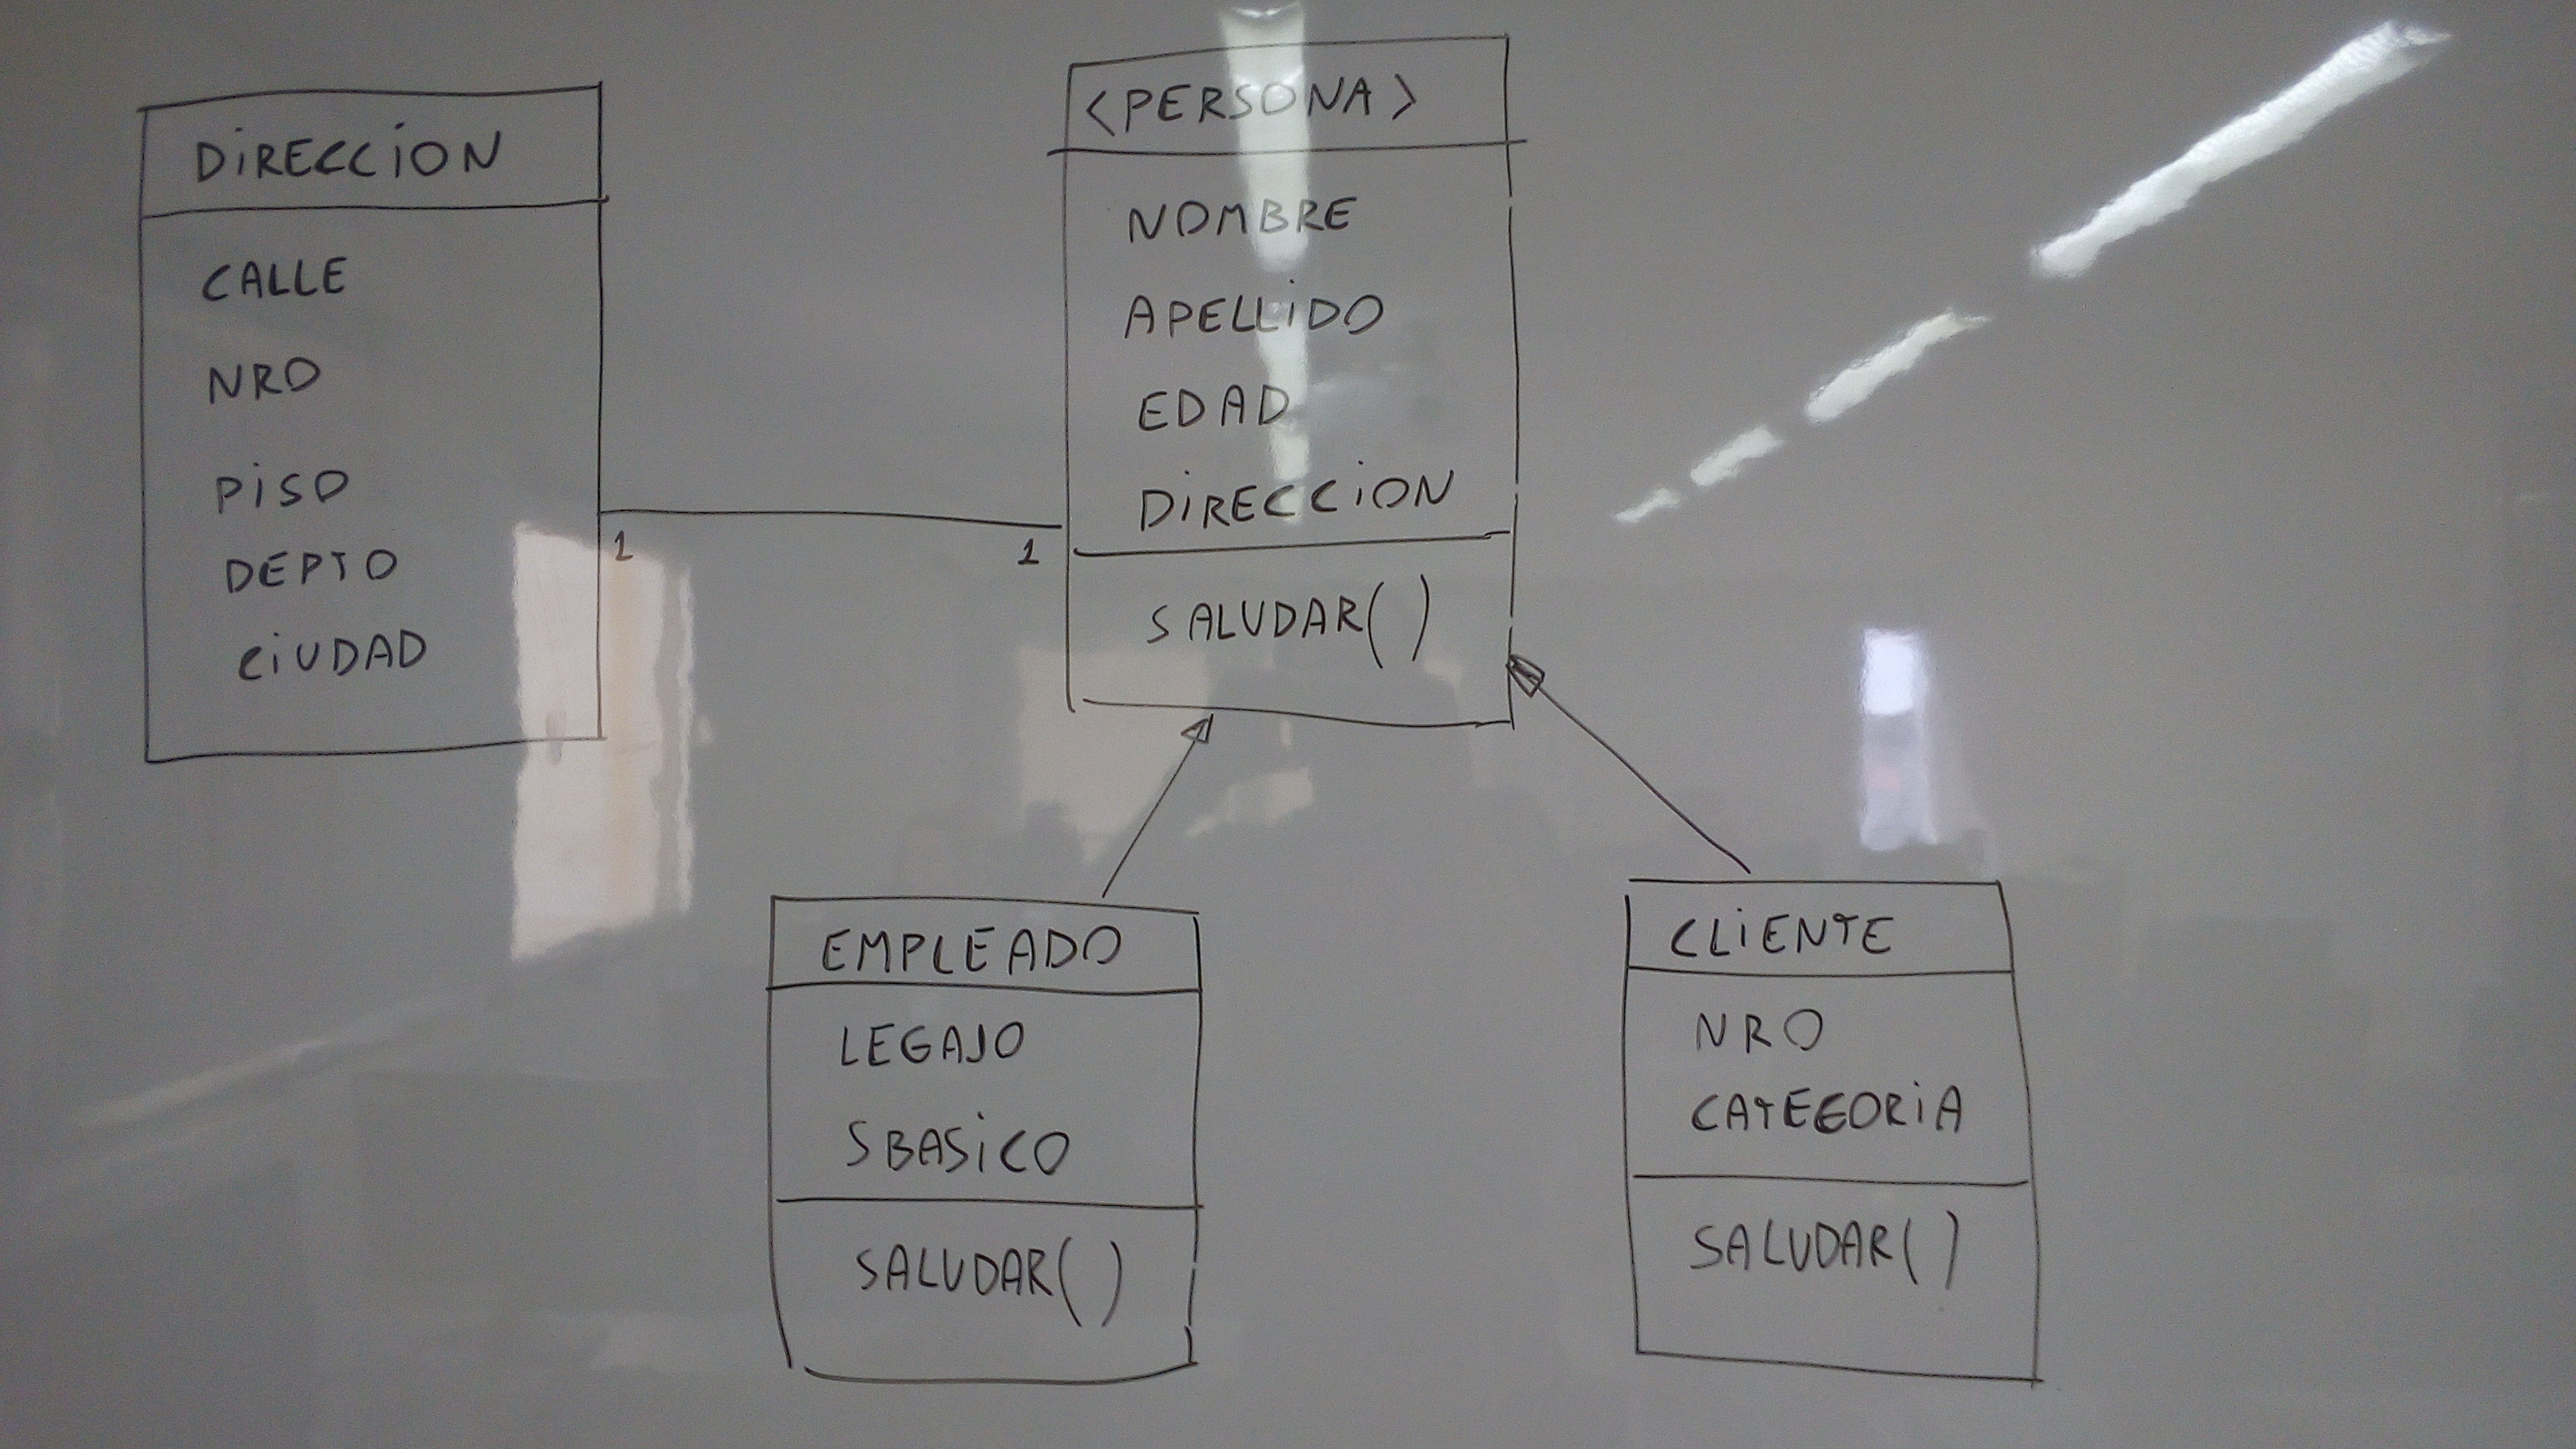 DiRECCiON
CALLE
NRO
PiSO
DEPTO
CiUDAD
1
1
<PERSONA>
NOMBRE
APELLiDO
EDAD
DiRECCiON
SALUDAR( )
EMPLEADO
LEGAJO
SBASiCO
SALUDAR( )
CLiENTE
NRO
CATEGORiA
SALUDAR( )